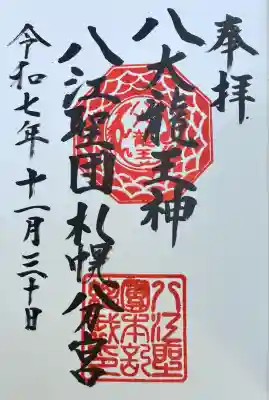 奉拝
八大龍王神
八江聖団札幌分宮
令和七年十一月三十日